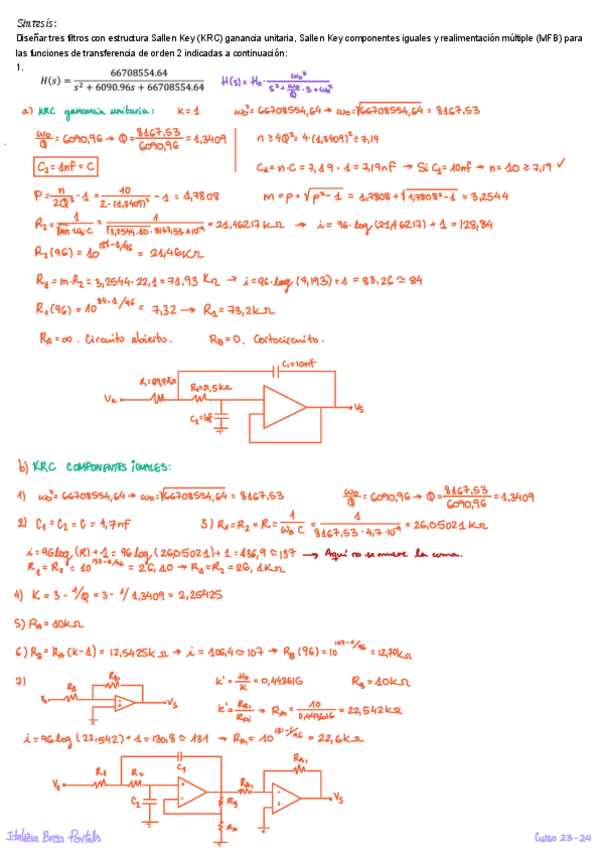 Síntesis:
Diseñar tres filtros con estructura Sallen Key (KRC) ganancia unitaria, Sallen Key componentes iguales y realimentación múltiple (MFB) para
las funciones de transferencia de orden 2 indicadas a continuación:
1.
H(s) = 66708554.64 / (s² + 6090.96s + 66708554.64)   H(s) = H₀ · ω₀² / (s² + ω₀/Q · s + ω₀²)
a) KRC ganancia unitaria: K=1   ω₀² = 66708554,64 → ω₀ = √66708554,64 = 8167,53
ω₀/Q = 6090,96 → Q = 8167,53/6090,96 = 1,3409   n ≥ 4Q² = 4·(1,3409)² ≥ 7,19
C₂ = 1nF = C   C₁ = n·C = 7,19·1 = 7,19nF → Si C₁ = 10nF → n = 10 ≥ 7,19 ✓
P = n/2Q² - 1 = 10/2·(1,3409)² - 1 = 1,7808   m = p + √p²-1 = 1,7808 + √1,7808²-1 = 3,2544
= 21,46217 KΩ → i = 96·log(21,46217) + 1 = 128,84
= 21,46KΩ
R₁ = m·R₂ = 3,2544·22,1 = 71,93 KΩ → i = 96·log (7,193) + 1 = 83,26 ≃ 84
R₁(96) = 10^(84-1/96) = 7,32 → R₁ = 73,2kΩ
R_A = ∞. Circuito abierto.   R_B = 0. Cortocircuito.
C₁ = 10nF
Vs
b) KRC COMPONENTES IGUALES:
1) ω₀² = 66708554,64 → ω₀ = √66708554,64 = 8167,53   ω₀/Q = 6090,96 → Q = 8167,53/6090,96 = 1,3409
2) C₁ = C₂ = C = 4,7nF   3) R₁ = R₂ = R = 1/ω₀C = 1/8167,53·4,7·10⁻⁹ = 26,05021 KΩ
i = 96log(R) + 1 = 96log(26,05021) + 1 = 136,9 ≃ 137 → Aquí no se mueve la coma.
= 26,10 → R₁ = R₂ = 26,1KΩ
4) K = 3 - 1/Q = 3 - 1/1,3409 = 2,25425
5) R_A = 10kΩ
6) R_B = R_A(K-1) = 12,5425kΩ → i = 106,4 ≃ 107 → R_B(96) = 10^(107-1/96) = 12,70kΩ
7)   K' = H₀/K = 0,443616
= 22,542kΩ
i = 96log(22,542) + 1 = 130,8 ≃ 131 → = 22,6kΩ
R₁ R₂ C₁ C₂ Vs
Curso 23-24